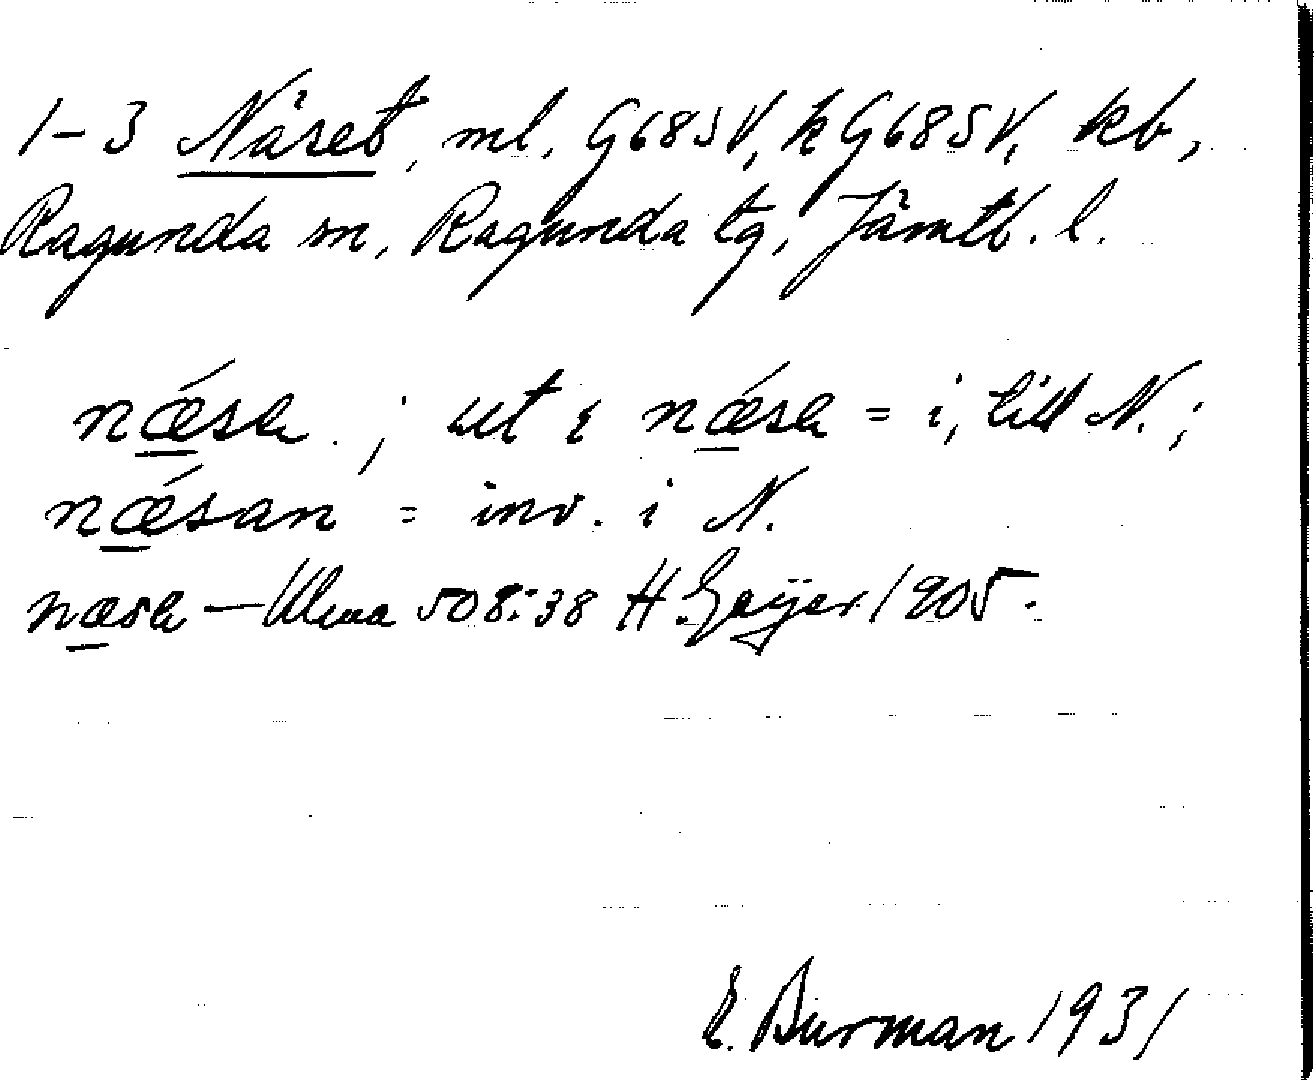 1-3 Näset, ml, G68SV, k G68SV, kb,
Ragunda sn, Ragunda tg, Jämtl. l.
nǽsa ; ut i nǽsa = i, till N. ;
nǽsan = inv. i N.
næsa — Ulma 508:38 H. Geijer 1905.
E. Burman 1931